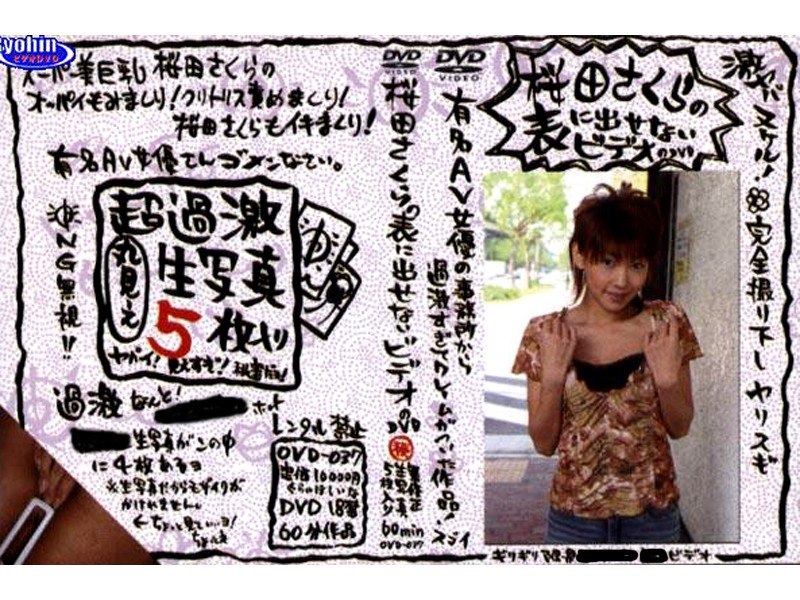 Ryohin
ビデオDVD
スーパー美巨乳 桜田さくらの
オッパイもみまくり!クリトリス責めまくり!
桜田さくらもイキまくり!
有名AV女優さんゴメンなさい。
超過激
丸見え
生写真
5枚入り
ヤバイ!見えすぎ!
NG無視!!
過激なんと!
生写真がこの中
に4枚あるヨ
※生写真だからモザイクが
かけれません。
レンタル禁止
OVD-037
定価10000円
ぐらいはしいな
DVD 18禁
60分作品
DVD
VIDEO
桜田さくらの表に出せないビデオのDVD
60min
OVD-037
DVD
VIDEO
有名AV女優の事務所から
過激すぎてクレームがついた作品!
桜田さくらの
表に出せない
ビデオのDVD
完全撮り下し ヤリスギ
ギリギリ
ビデオ